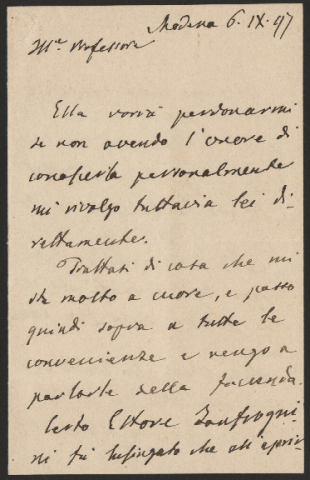 Modena 6.IX.97
Ill.e Professore
Ella vorrà perdonarmi
se non avendo l'onore di
conoscerla personalmente
mi rivolgo tuttavia lei di-
rettamente.
Trattasi di cosa che mi
sta molto a cuore, e passo
quindi sopra a tutte le
convenienze e vengo a
parlarle della faccenda.
Certo Ettore Zanfrogni-
ni fu lusingato che all'aprir-